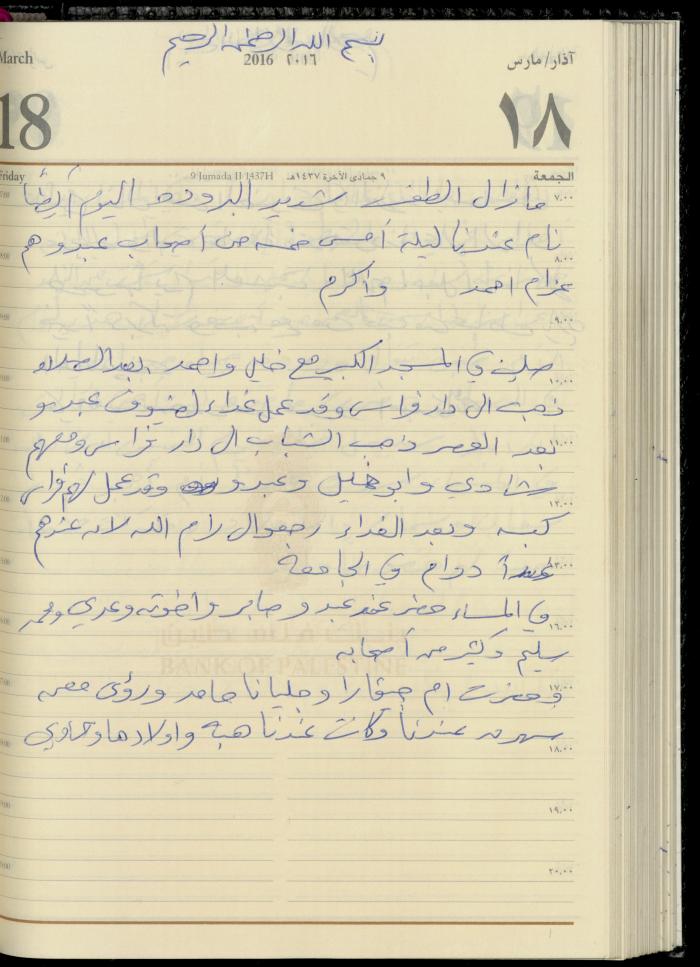 بسم الله الرحمن الرحيم
March
2016 ٢٠١٦
آذار/مارس
18
١٨
Friday
9 Jumada II 1437H
٩ جمادى الآخرة ١٤٣٧هـ
الجمعة
٧,٠٠ مازال الطقس شديد البروده اليوم أيضاً
نام عندنا ليلة أمس خمسه من أصحاب عبدو هم
٨,٠٠
عزام احمد واكرم
٩,٠٠
صليت في المسجد الكبير مع خليل واحمد بعد الصلاه
١٠,٠٠
ذهبت الى دار فراس وقد عمل غداء لضيوف عبدو
١١,٠٠ بعد العصر ذهب الشباب الى دار فراس ومعهم
شادي وابو خليل وعبدو وقد عمل لهم فراس
١٢,٠٠
كبسه وبعد الغداء رجعوا الى رام الله لانه عندهم
غداً دوام في الجامعة
في المساء حضر عند عبدو صابر واخوته وعدي ومحمد
١٦,٠٠
سليم وكثير من أصحابه
BANK OF PALESTINE
١٧,٠٠ وحضرت ام وجليانا حامد ورؤى
سهرت عندنا وكانت عندنا هبه واولادها
١٨,٠٠
١٩,٠٠
٢٠,٠٠